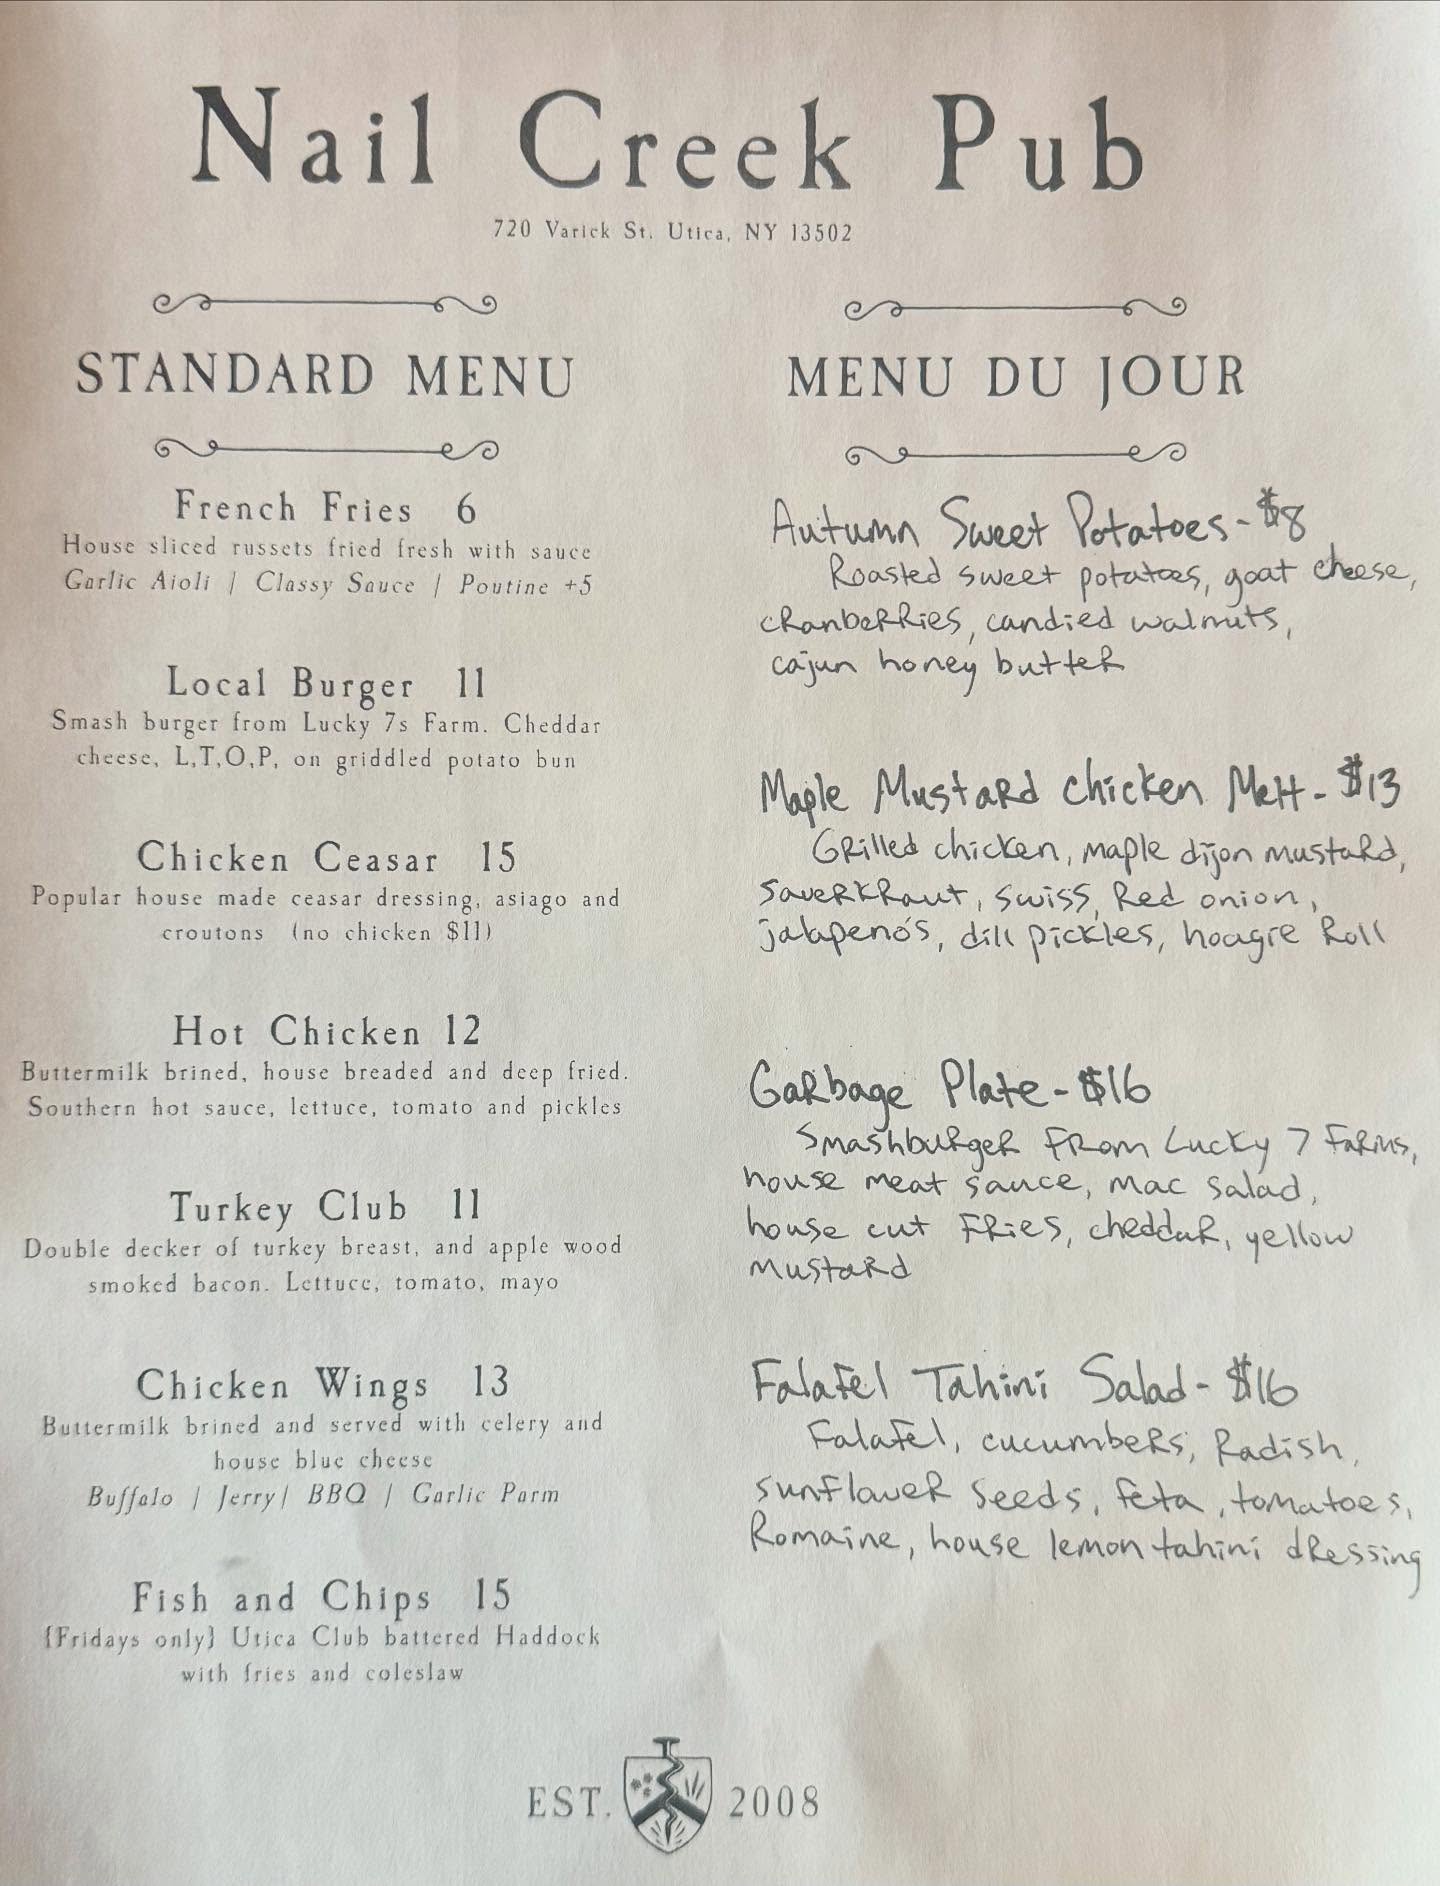 Nail Creek Pub
720 Varick St. Utica, NY 13502
STANDARD MENU
French Fries 6
House sliced russets fried fresh with sauce
Garlic Aioli / Classy Sauce / Poutine +5
Local Burger 11
Smash burger from Lucky 7s Farm. Cheddar
cheese, L,T,O,P, on griddled potato bun
Chicken Ceasar 15
Popular house made ceasar dressing, asiago and
croutons (no chicken $11)
Hot Chicken 12
Buttermilk brined, house breaded and deep fried.
Southern hot sauce, lettuce, tomato and pickles
Turkey Club 11
Double decker of turkey breast, and apple wood
smoked bacon. Lettuce, tomato, mayo
Chicken Wings 13
Buttermilk brined and served with celery and
house blue cheese
Buffalo / Jerry/ BBQ / Garlic Parm
Fish and Chips 15
{Fridays only} Utica Club battered Haddock
with fries and coleslaw
MENU DU JOUR
Autumn Sweet Potatoes - $8
Roasted sweet potatoes, goat cheese,
cranberries, candied walnuts,
cajun honey butter
Maple Mustard Chicken Melt - $13
Grilled chicken, maple dijon mustard,
sauerkraut, swiss, red onion,
jalapeno's, dill pickles, hoagie roll
Garbage Plate - $16
Smashburger from Lucky 7 Farms,
house meat sauce, mac salad,
house cut fries, cheddar, yellow
mustard
Falafel Tahini Salad - $16
Falafel, cucumbers, radish,
sunflower seeds, feta, tomatoes,
Romaine, house lemon tahini dressing
EST. 2008